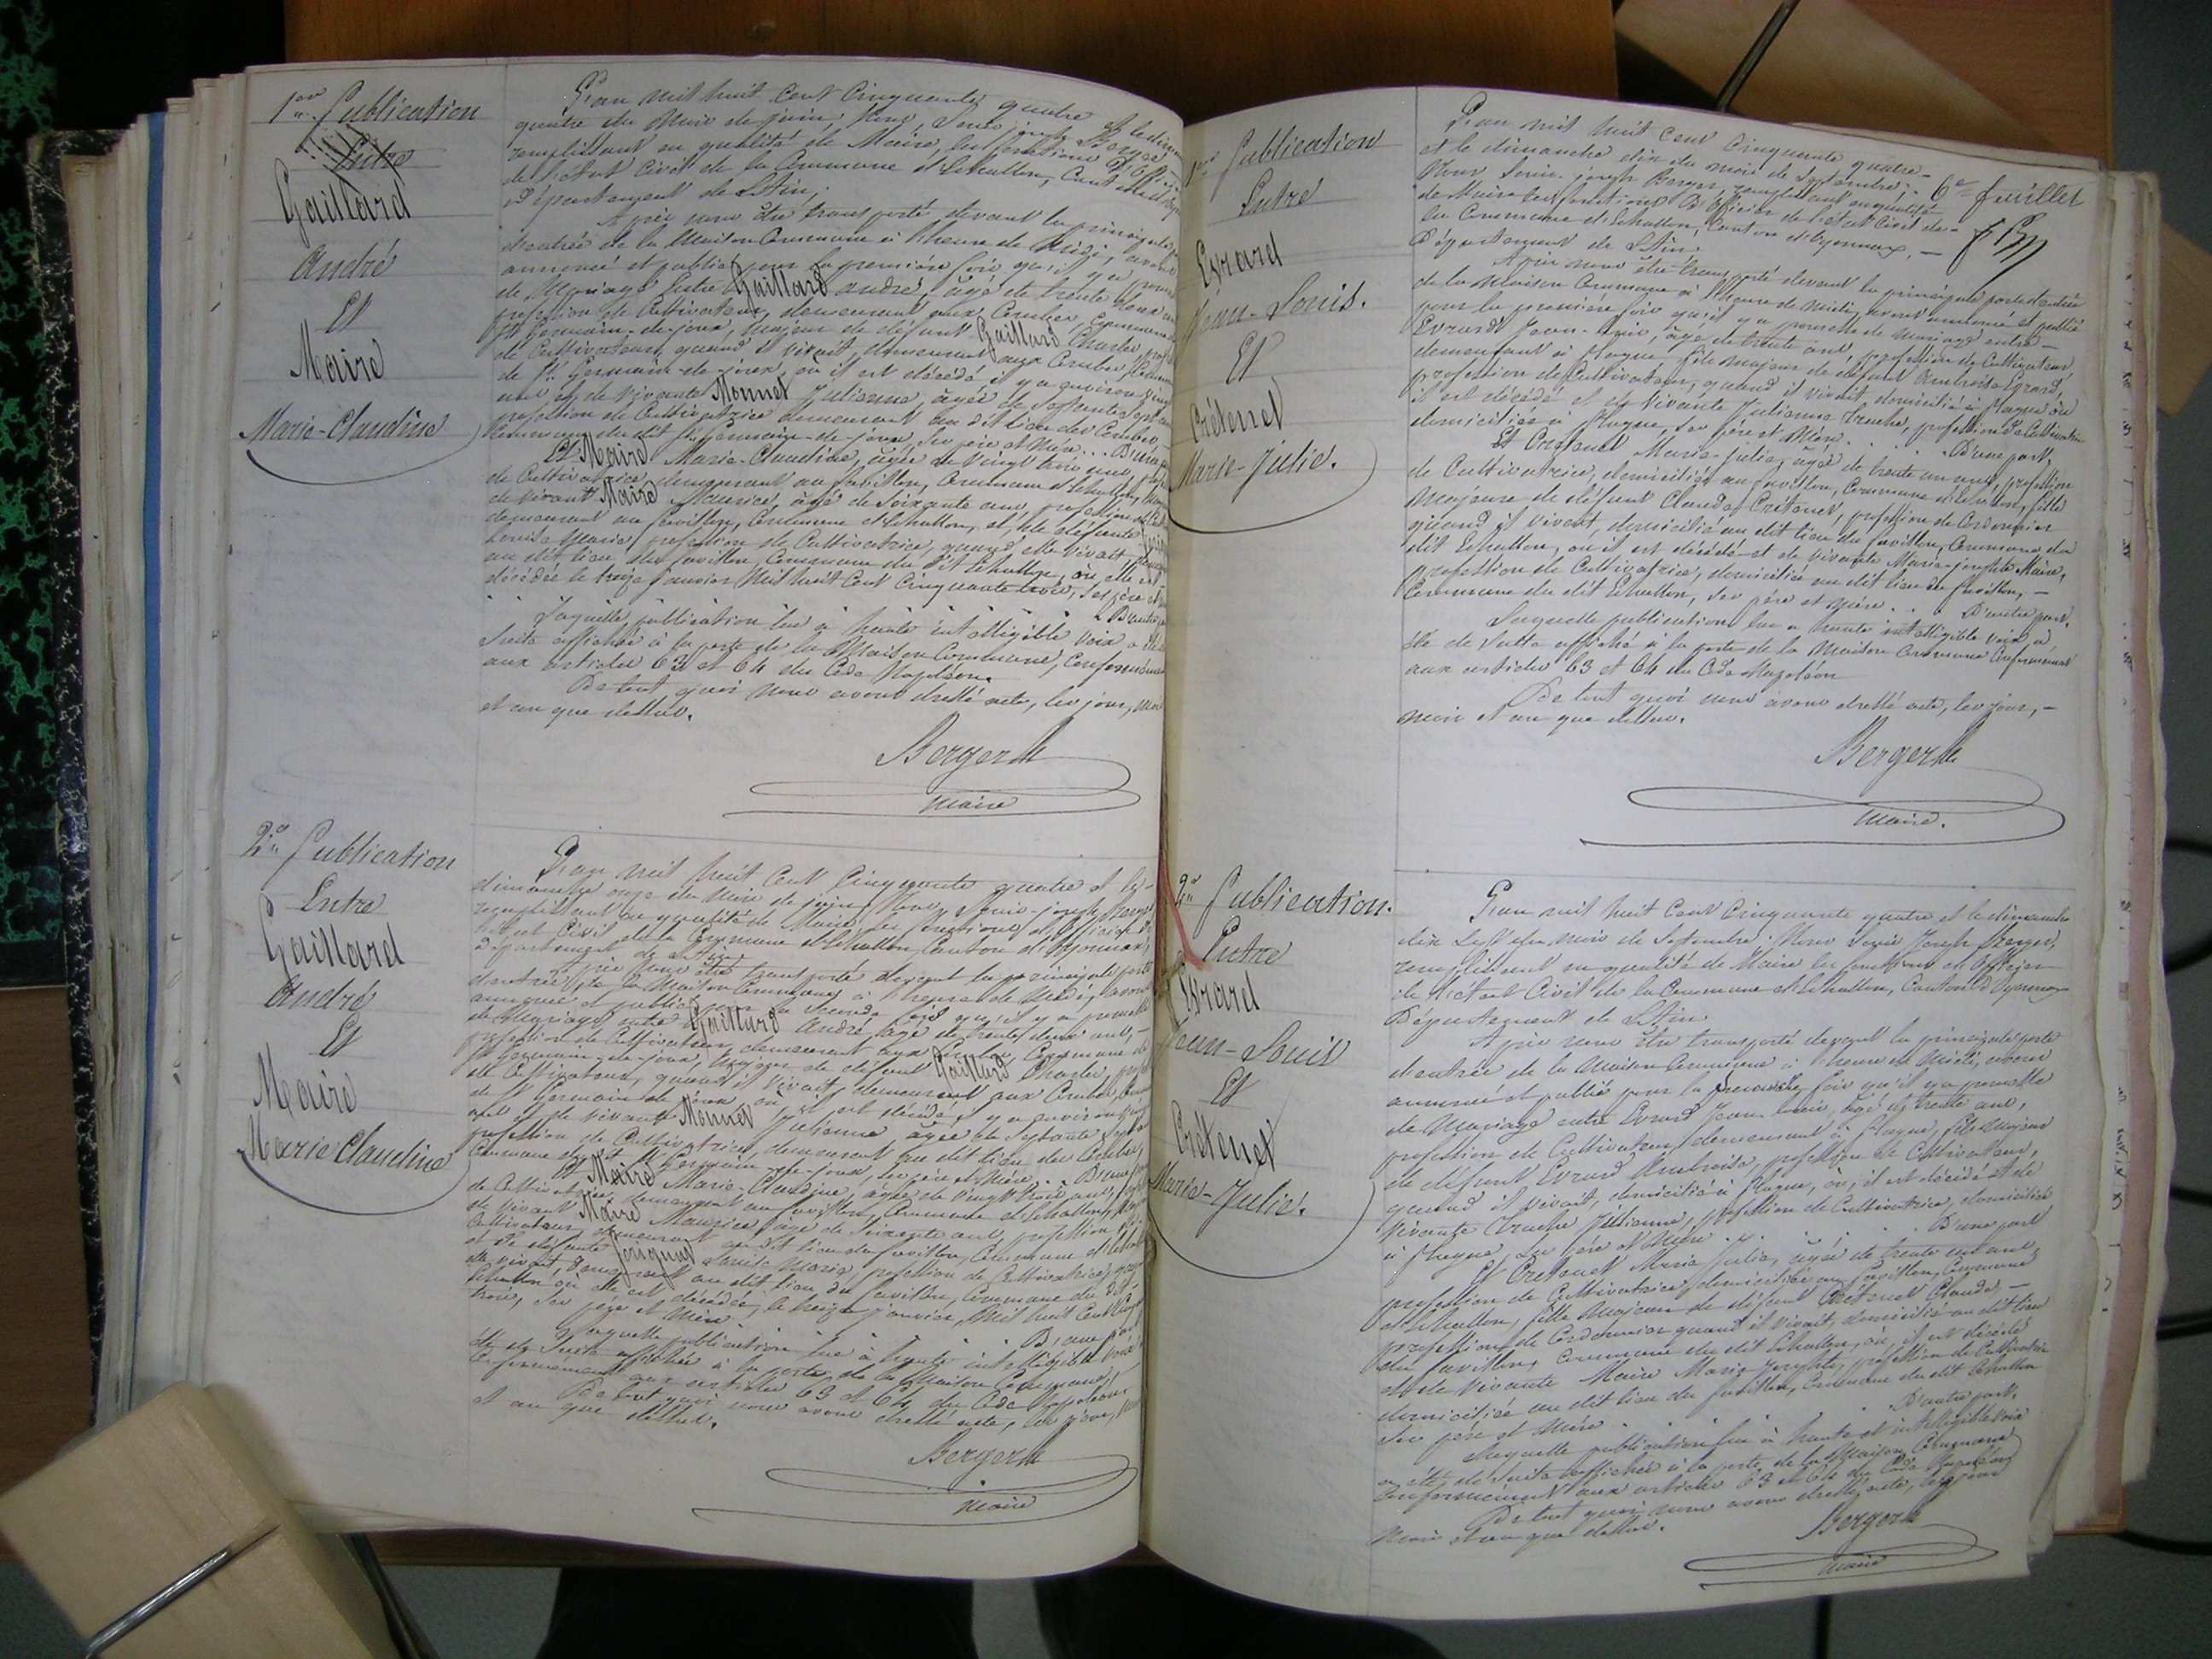 1ere Publication
Entre
Gaillard
André
Et
Maire
Marie-Claudine
L'an mil huit cent cinquante quatre et le
quatre du mois de juin, Nous, Louis-joseph Berger
remplissant en qualité de Maire, les fonctions d'Officier
de l'état Civil de la Commune d'Echallon, Canton
Département de l'Ain;
Après nous être transporté devant la principale
d'entrée de la Maison Commune à l'heure de Midi, avons
annoncé et publié pour la première fois qu'il y a
de Mariage Entre Gaillard andré, âgé de trente deux
profession de Cultivateur, demeurant aux Combes, Commune
St Germain-de-joux, majeur de défunt Gaillard Charles
de Cultivateur, quand il vivait, demeurant aux Combes,
de St Germain-de-joux, où il est décédé, il y a environ
ans, et de vivante Monnet Julienne, âgée de Septante
profession de Cultivatrice demeurant au dit lieu des Combes
Commune du dit St Germain-de-joux, ses père et Mère . . .
Et Maire Marie-Claudine, âgée de vingt trois ans,
de Cultivatrice, demeurant au favillon, Commune d'Echallon,
de vivant Maire Maurice, âgé de Soixante ans, profession de
demeurant au favillon, Commune d'Echallon, et de défunte
Louise Marie, profession de Cultivatrice, quand elle vivait
au dit lieu du favillon, Commune du dit Echallon, où elle est
décédée le treize janvier Mil huit Cent Cinquante trois, ses père et
Laquelle publication lue à haute intelligible voix a été
Suite affichée à la porte de la Maison Commune, Conformément
aux articles 63 et 64 du Code Napoléon.
De tout quoi nous avons dressé acte, les jour, mois
et an que dessus.
Berger
Maire
2e Publication
Entre
Gaillard
André
Et
Maire
Marie Claudine
L'an mil huit Cent Cinquante quatre et le
dimanche onze du Mois de juin, Nous, Louis-joseph Berger
remplissant en qualité de Maire, les fonctions d'Officier
l'état Civil de la Commune d'Echallon, Canton d'Oyonnax,
Département de l'Ain.
Après nous être transporté devant la principale porte
d'entrée de la Maison Commune, à l'heure de Midi, avons
annoncé et publié pour la Seconde fois qu'il y a promesse
de Mariage, entre Gaillard André, âgé de trente deux ans,
profession de Cultivateur, demeurant aux Combes, Commune de
St Germain-de-joux, Majeur de défunt Gaillard Charles,
de Cultivateur, quand il vivait, demeurant aux Combes,
de St Germain de joux où il est décédé, il y a environ
ans et de vivante Monnet Julienne âgée de Septante
profession de Cultivatrice, demeurant au dit lieu des Combes,
Commune du dit St Germain-de-joux, ses père et Mère
Et Maire Marie-Claudine, âgée de vingt trois ans,
de Cultivatrice, demeurant au favillon, Commune d'Echallon,
de vivant Maire Maurice, âgé de Soixante ans, profession de
Cultivateur demeurant au dit lieu du favillon, Commune
et de défunte Louise Marie, profession de Cultivatrice,
elle vivait, demeurant au dit lieu du favillon, Commune du dit
Echallon où elle est décédée, le treize janvier, Mil huit Cent
trois, ses père et Mère.
Laquelle publication lue à haute intelligible voix
été de Suite affichée à la porte de la Maison Commune,
Conformément aux articles 63 et 64 du Code Napoléon
De tout quoi nous avons dressé acte, les jour,
et an que dessus.
Berger
Maire
6e feuillet
1ere Publication
Entre
Evrard
Jean-Louis.
Et
Crétenet
Marie-Julie.
L'an mil huit cent Cinquante quatre
et le dimanche dix du mois de Septembre;
Nous Louis-joseph Berger, remplissant en qualité
de Maire les fonctions d'Officier de l'état Civil de
la Commune d'Echallon, Canton d'Oyonnax,
Département de l'Ain.
Après nous être transporté devant la principale porte d'entrée
de la Maison Commune à l'heure de Midi, avons annoncé et publié
pour la première fois qu'il y a promesse de Mariage entre
Evrard Jean-Louis, âgé de trente ans, profession de Cultivateur,
demeurant à Plagne, fils majeur de défunt Ambroise Evrard,
profession de Cultivateur, quand il vivait, domicilié à Plagne où
il est décédé et de vivante Julienne profession de Cultivatrice
domiciliée à Plagne, ses père et Mère . . . D'une part,
Et Cretenet Marie-Julie, âgée de trente un ans, profession
de Cultivatrice, domiciliée au favillon, Commune d'Echallon, fille
Majeure de défunt Claude Crétenet, profession de Cordonnier
quand il vivait, domicilié au dit lieu du favillon, Commune du
dit Echallon, où il est décédé et de vivante Marie-josephte Maire,
profession de Cultivatrice, domiciliée au dit lieu du favillon,
Commune du dit Echallon, ses père et Mère . . . D'autre part.
Laquelle publication lue à haute intelligible voix a
été de Suite affiché à la porte de la Maison Commune Conformément
aux articles 63 et 64 du Code Napoléon
De tout quoi nous avons dressé acte, les jour,
mois et an que dessus.
Berger
Maire.
2e Publication.
Entre
Evrard
Jean-Louis
Et
Crétenet
Marie-Julie.
L'an mil huit Cent Cinquante quatre et le dimanche
dix Sept du mois de Septembre. Nous Louis Joseph Berger,
remplissant en qualité de Maire les fonctions d'Officier
de l'état Civil de la Commune d'Echallon, Canton d'Oyonnax
Département de l'Ain.
Après nous être transporté devant la principale porte
d'entrée de la Maison Commune à l'heure de Midi, avons
annoncé et publié pour la fois qu'il y a promesse
de Mariage entre Evrard Jean Louis, âgé de trente ans,
profession de Cultivateur, demeurant à Plagne, fils Majeur
de défunt Evrard Ambroise, profession de Cultivateur,
quand il vivait, domicilié à Plagne, où il est décédé et de
vivante Julienne, profession de Cultivatrice, domiciliée
à Plagne, ses père et Mère . . . D'une part
Et Cretenet Marie Julie, âgée de trente un ans,
profession de Cultivatrice, domiciliée au favillon, Commune
d'Echallon, fille Majeure de défunt Cretenet Claude
profession de Cordonnier quand il vivait, domicilié au dit lieu
du favillon, Commune du dit Echallon, où il est décédé
et de vivante Maire Marie-Josephte, profession de Cultivatrice
domiciliée au dit lieu du favillon, Commune du dit Echallon
ses père et Mère . . . D'autre part.
Laquelle publication lue à haute et intelligible voix
a été de Suite affichée à la porte de la Maison Commune
Conformément aux articles 63 et 64 du Code Napoléon
De tout quoi nous avons dressé acte, les jour
Mois et an que dessus.
Berger
Maire